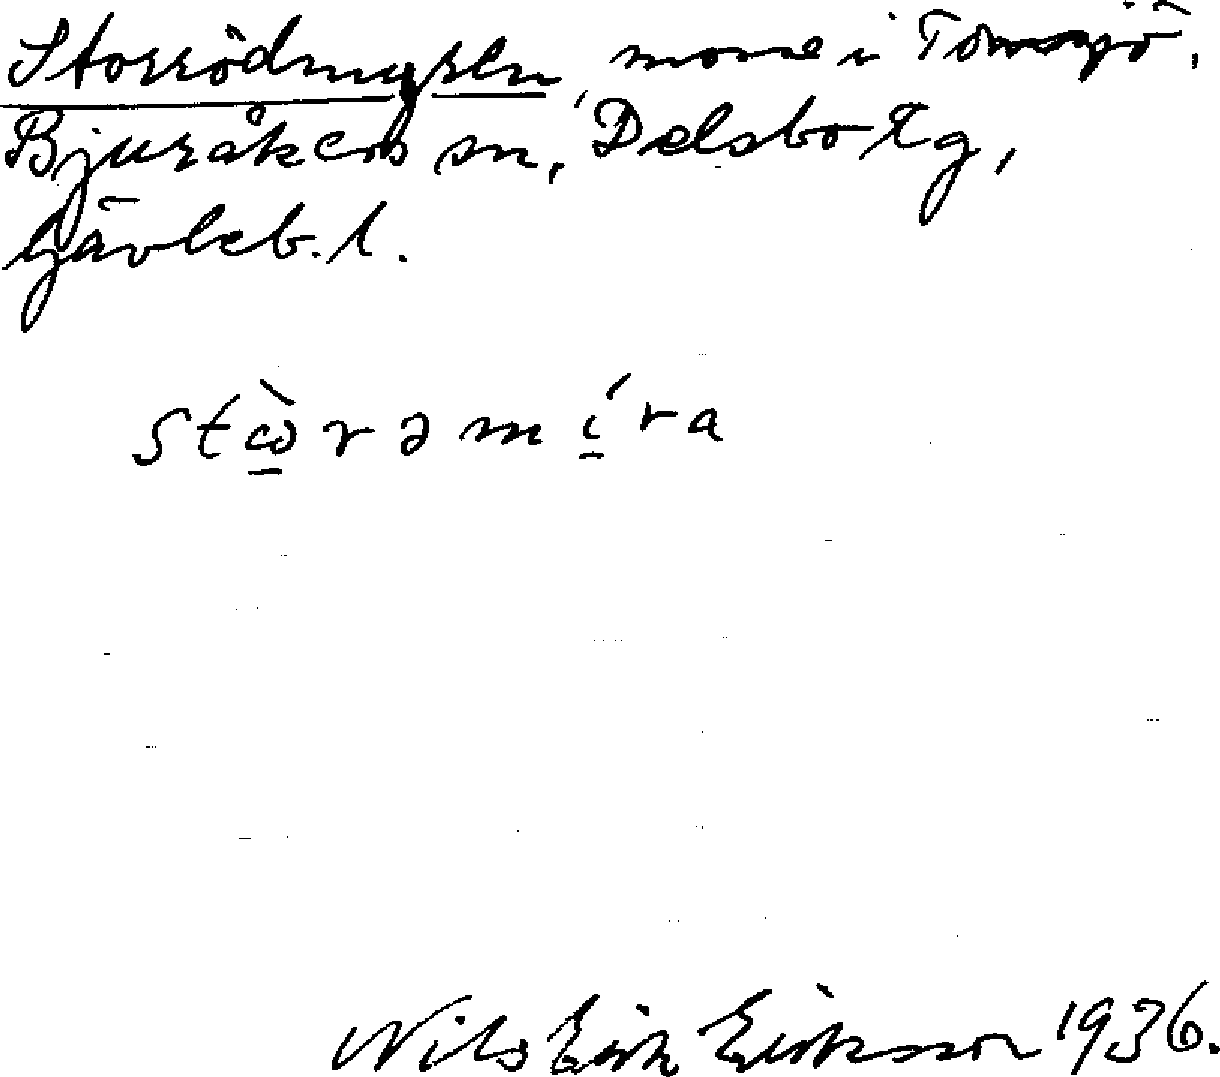 Storrödmyren, mosse i Tomsjö,
Bjuråkers sn, Delsbo tg,
Gävleb. l.
stὼrəmíra
Nils Erik Eriksson 1936.